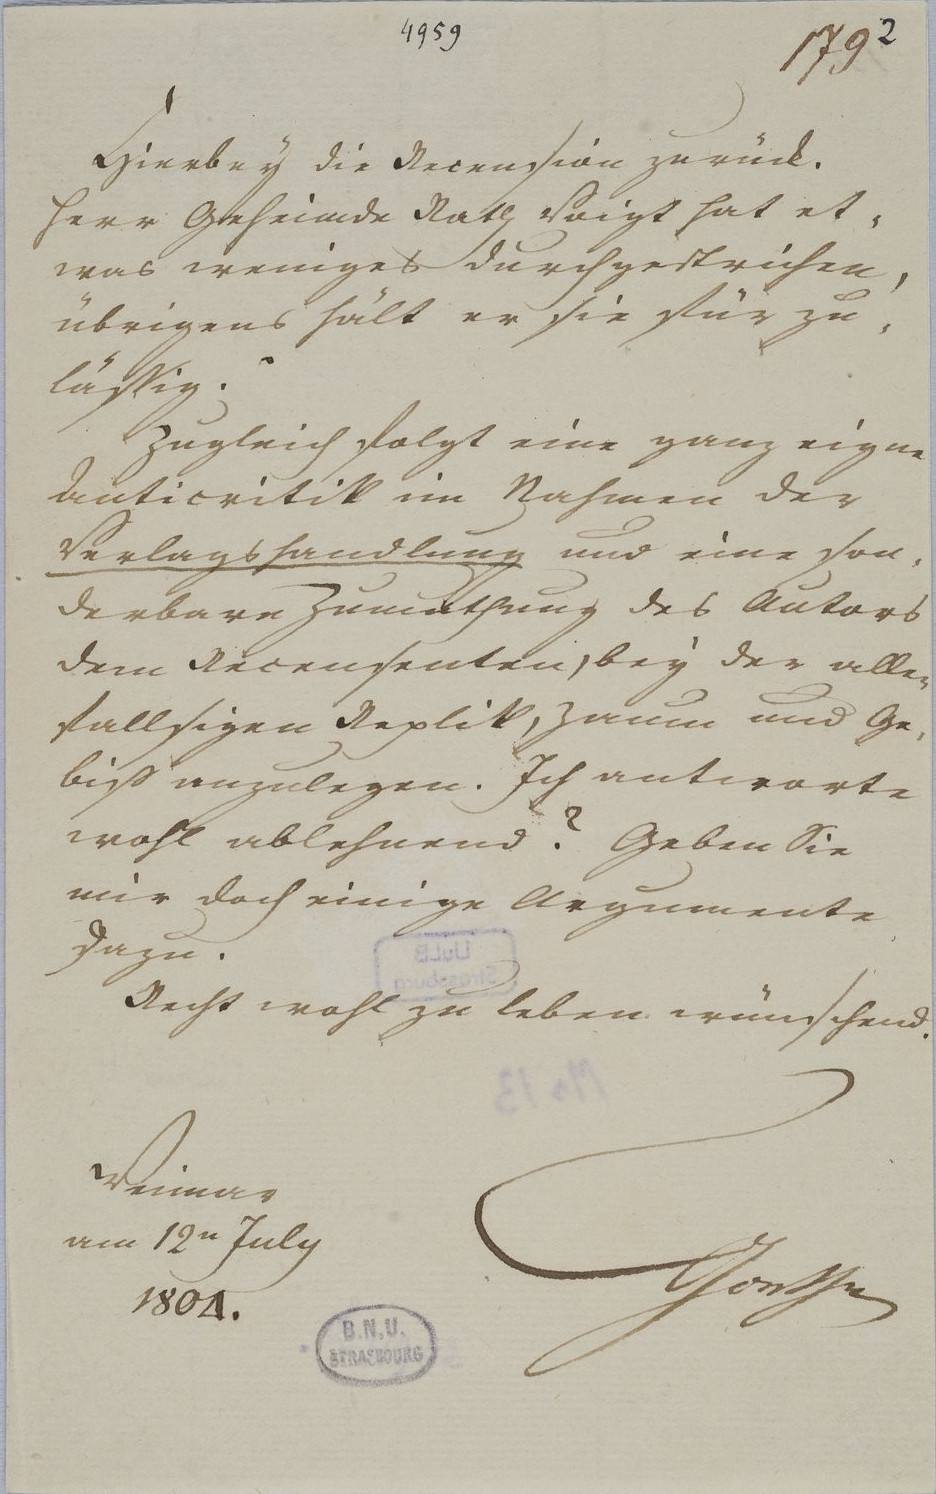 4959
179²
Hierbey die Recension zurück.
Herr Geheimde Rath Voigt hat et-
was weniges durchgestrichen,
übrigens hält er sie für zu-
lässig.
Zugleich folgt eine ganz eigne
Anticritik im Nahmen der
Verlagshandlung und eine son-
derbare Zumuthung des Autors
dem Recensenten, bey der allen-
fallsigen Replik, Zaum und Ge-
biß anzulegen. Ich antworte
wohl ablehnend? Geben Sie
mir doch einige Argumente
dazu.
Recht wohl zu leben wünschend.
Weimar
am 12n July
1804.
Goethe
UuLB
Strassburg
Ms 13
B.N.U.
STRASBOURG